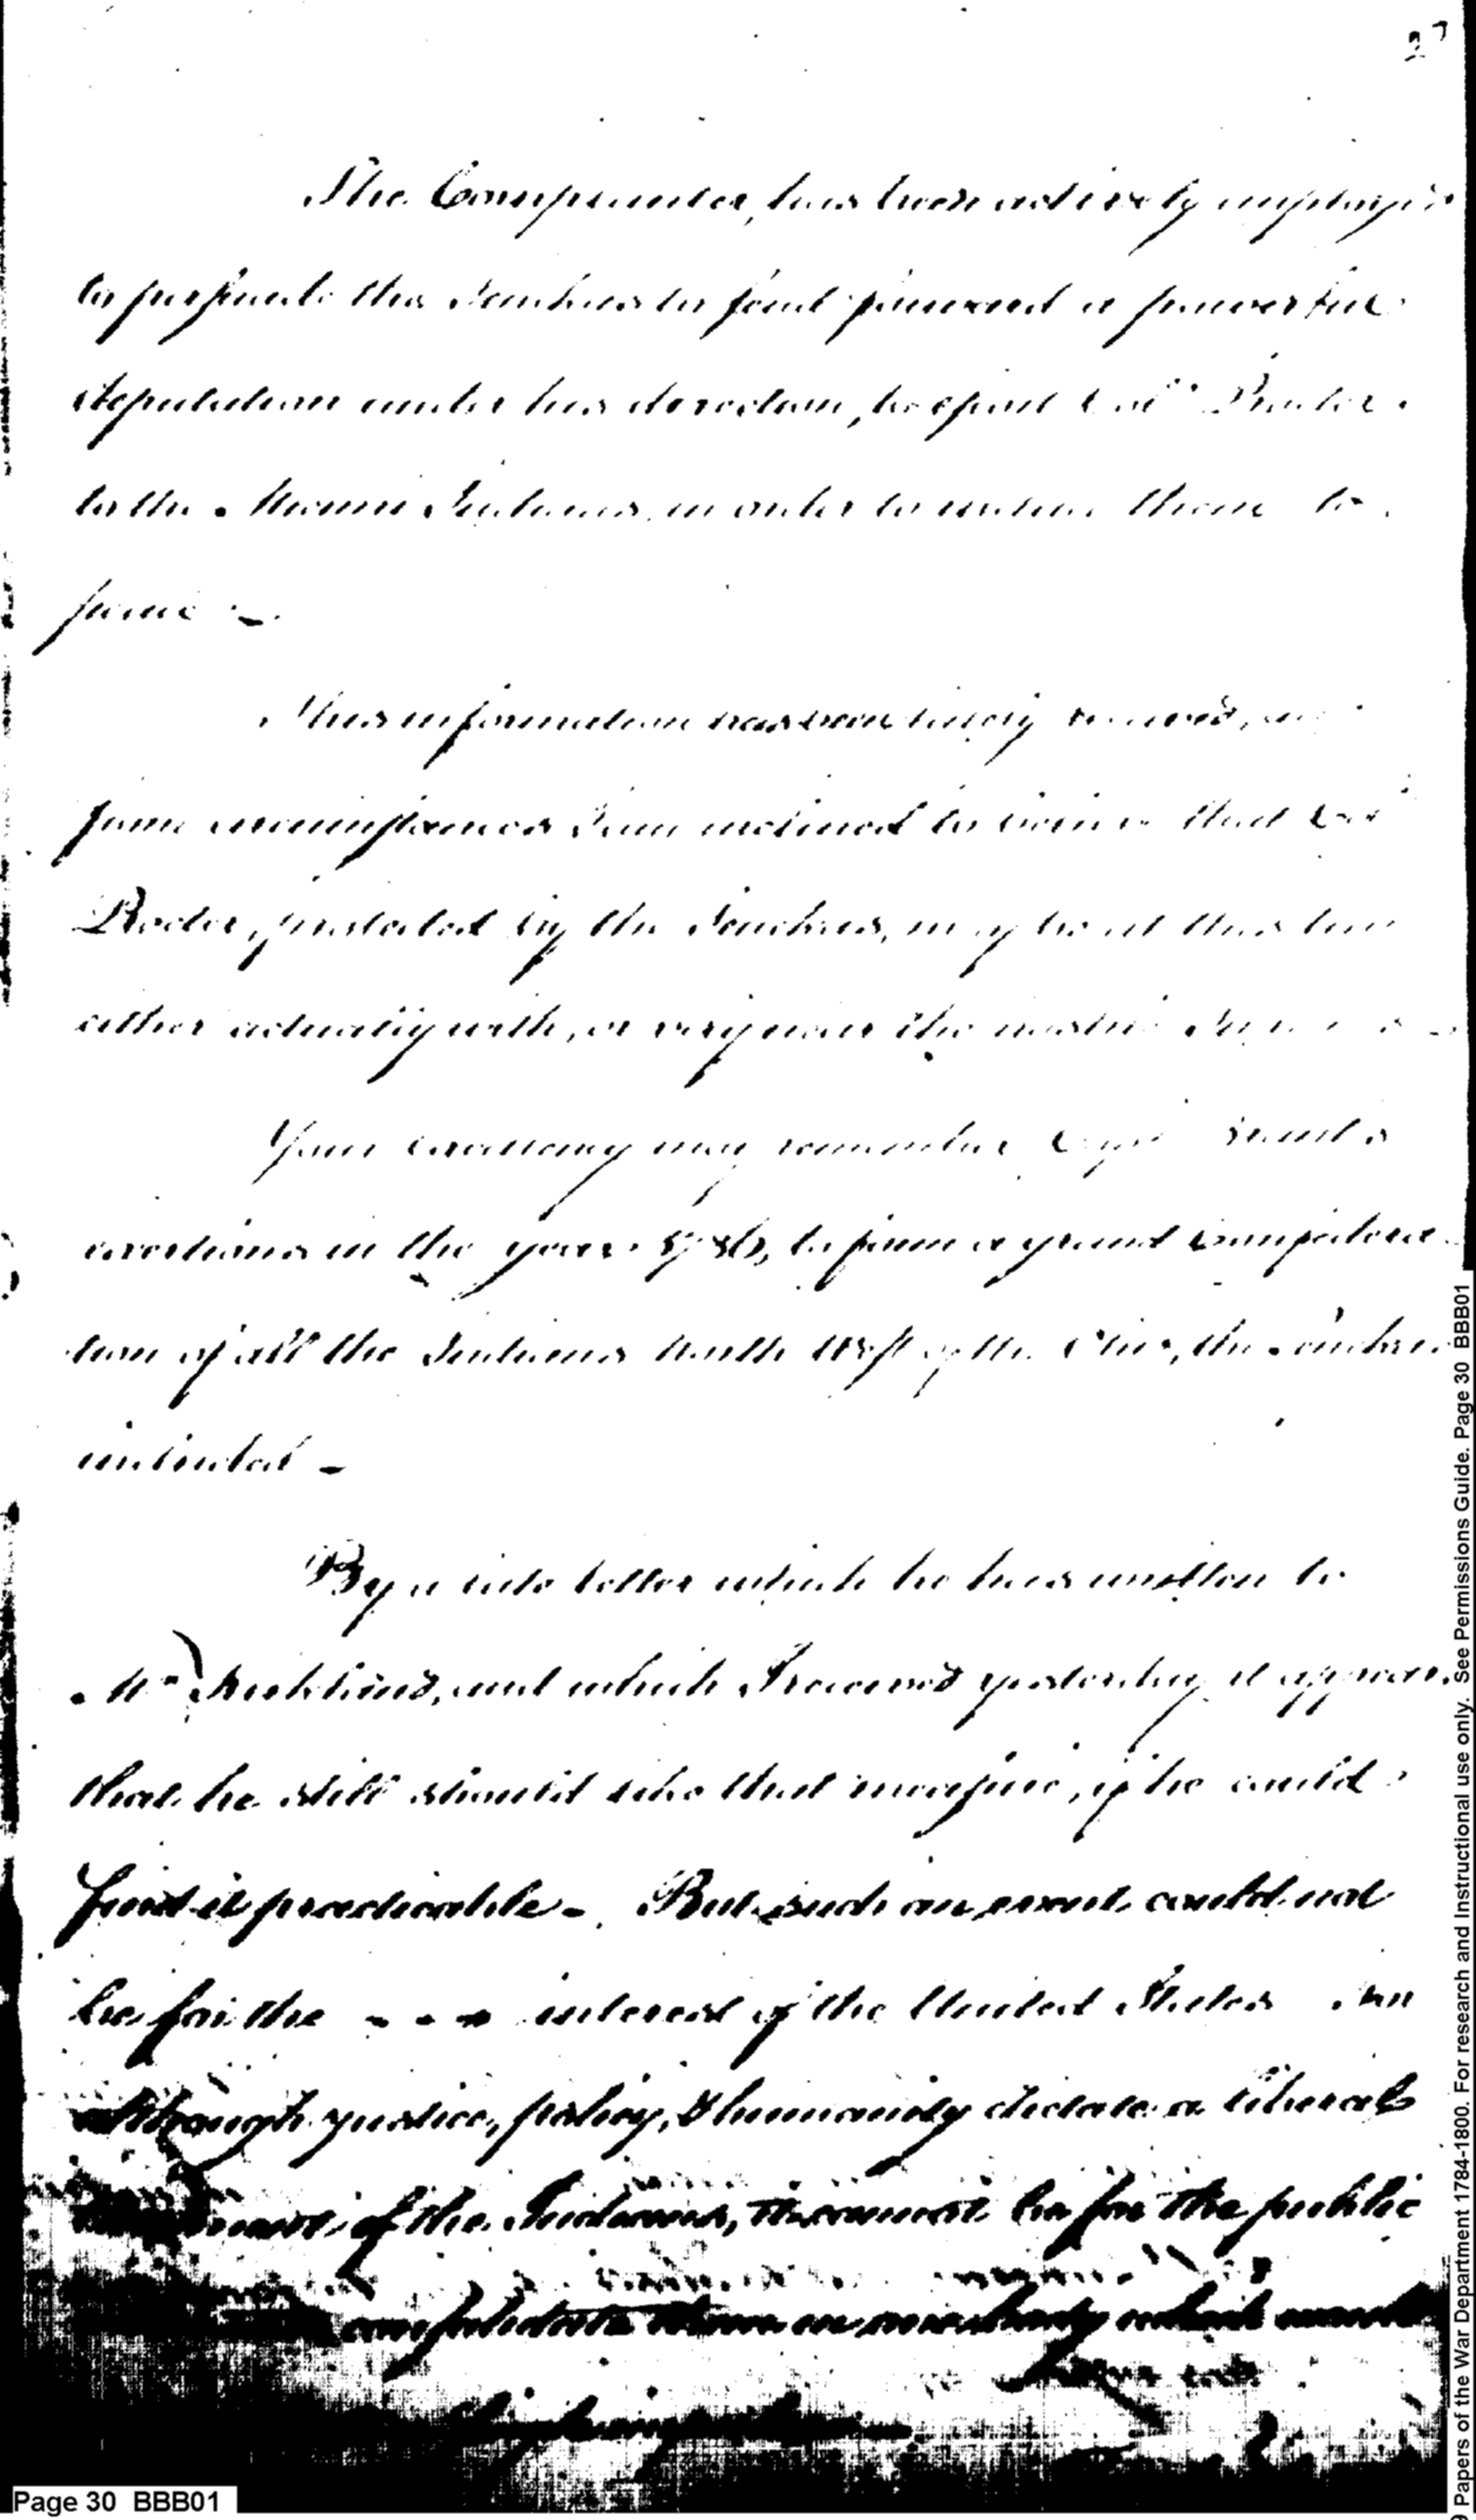 27
The Cornplanter, has been actively employed
to persuade the Senekas to send forward a powerful
deputation under his direction, to assist Colo Proctor
to the Miami Indians in order to induce them to
peace —
This information has been lately received,
some circumstances I am inclined to believe that Colo
Procter, protected by the Senekas, may be at this time
either actually with, or very near the
Your excellency may remember Capt Brant's
exertions in the year 1786, to form a grand confedera-
tion of all the Indians North West of the Ohio, the Senekas
included —
By a late letter which he has written to
Mr Kirkland, and which I received yesterday it appears
that he still should like that measure, if he could
find it practicable — But such an event could not
be for the - - - interest of the United States
although justice, policy, & humanity dictate a liberal
of the Indians, it cannot be for the public
consolidate them in one body which would
Page 30 BBB01
Papers of the War Department 1784-1800. For research and Instructional use only. See Permissions Guide. Page 30 BBB01